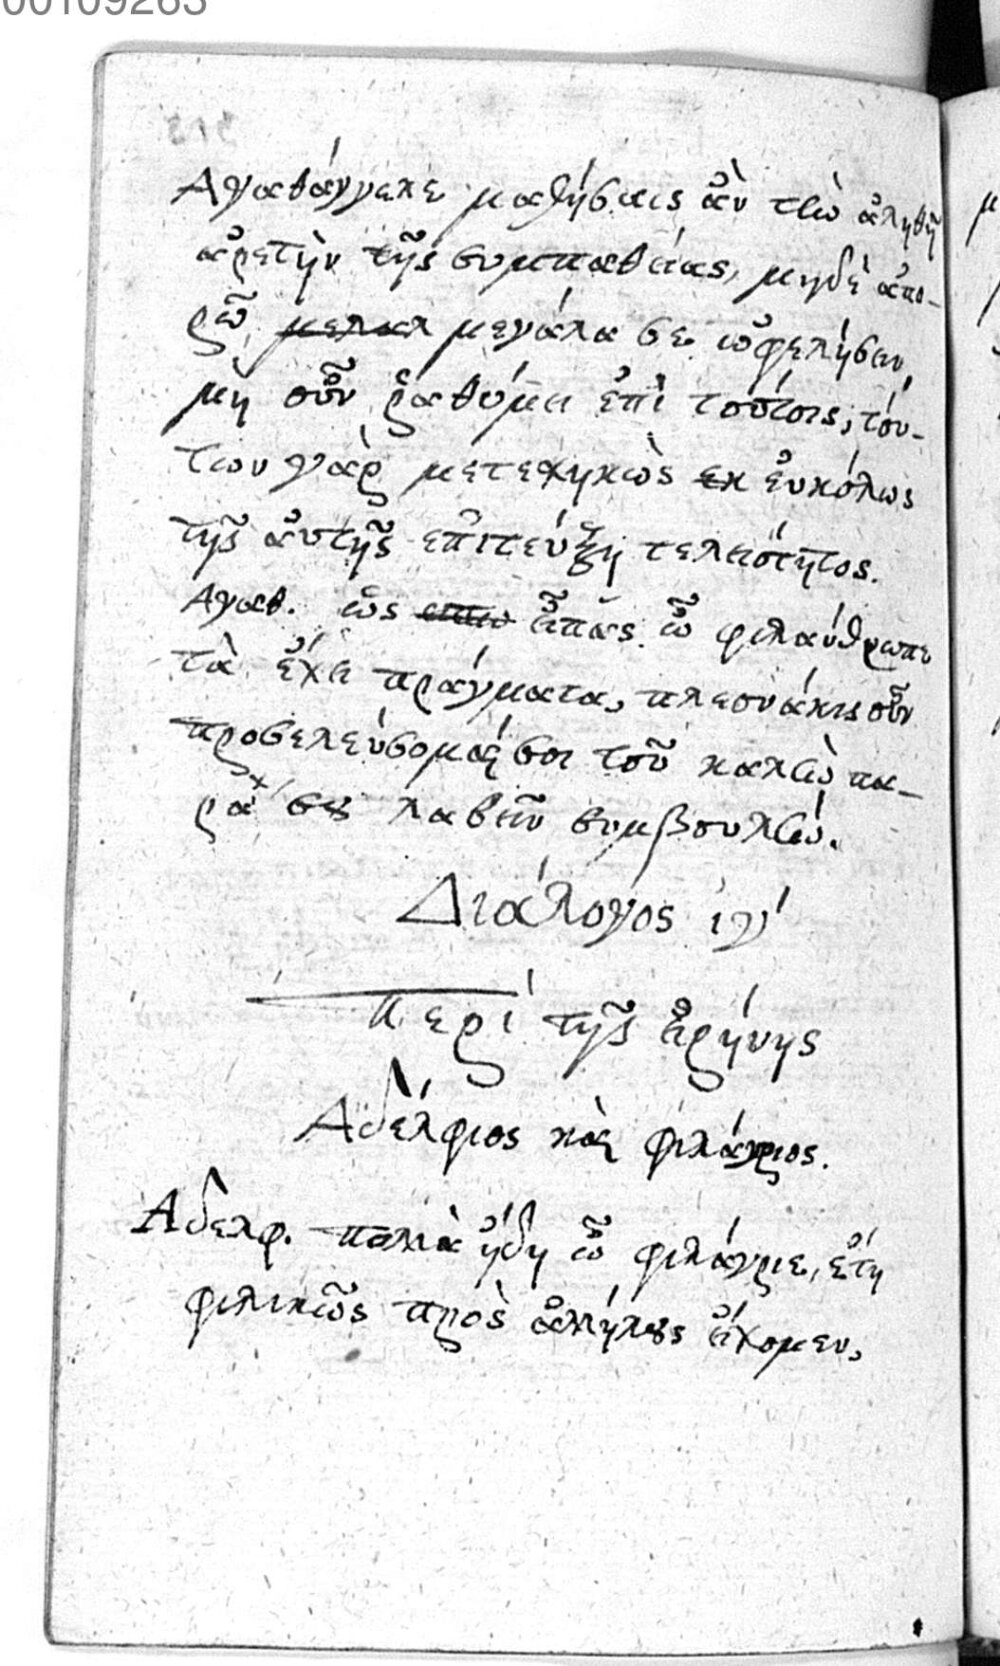 00109263
Ἀγαθάγγελε μαθήσαις ἂν τὴν ἀληθῆ
ἀρετὴν τῆς συμπαθείας, μηδὲ ἀπο-
ρῶ μεγάλα σε ὠφελήσειν,
μὴ οὖν ῥαθύμει ἐπὶ τούτοις, τού-
των γὰρ μετεχηκὼς εὐκόλως
τῆς αὐτῆς ἐπιτεύξῃ τελειότητος.
Αγαθ. ὡς εἶπας ὦ φιλάνθρωπε
τὰ ἔχει πράγματα, πλεονάκις οὖν
προσελεύσομαί σοι τοῦ καλὴν πα-
ρὰ σοῦ λαβεῖν συμβουλήν.
Διάλογος ιγ'
περὶ τῆς εἰρήνης
Ἀδέλφιος καὶ φιλάγριος.
Ἀδελφ. πολλὰ ἤδη ὦ φιλάγριε, ἔτη
φιλικῶς πρὸς ἀλλήλους εἴχομεν,